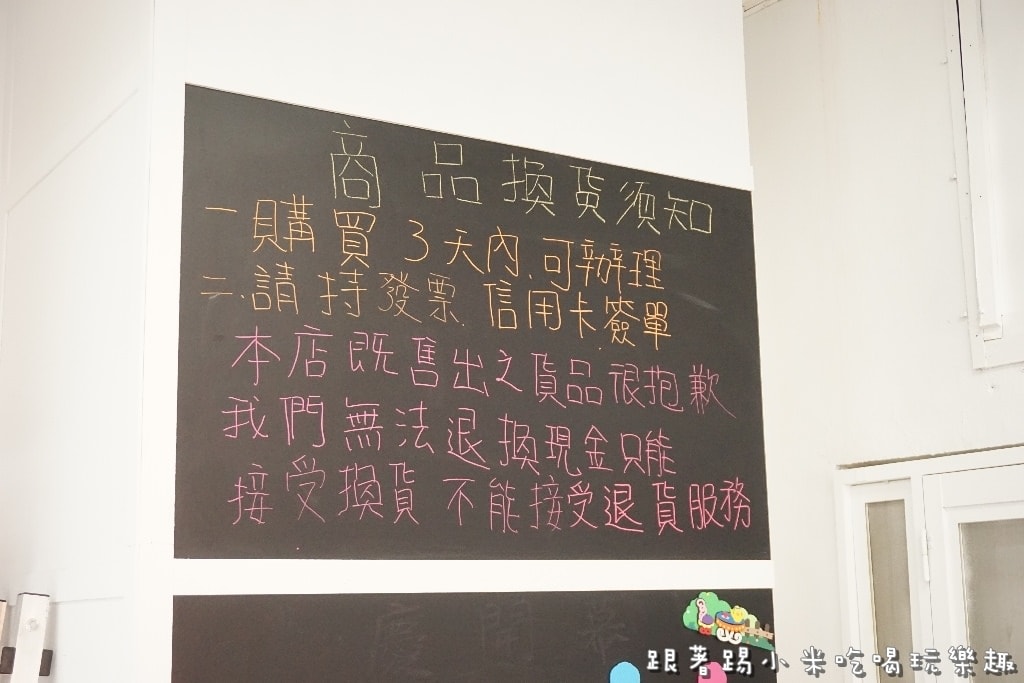 商品換貨須知
一購買3天內.可辦理
二.請持發票.信用卡簽單
本店既售出之貨品很抱歉
我們無法退換現金只能
接受換貨 不能接受退貨服務
跟著踢小米吃喝玩樂趣